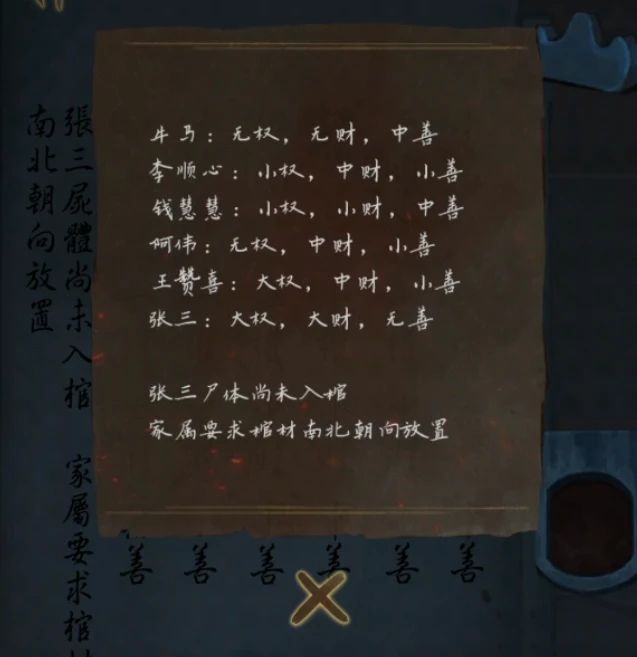 牛马：无权，无财，中善
李顺心：小权，中财，小善
钱慧慧：小权，小财，中善
阿伟：无权，中财，小善
王赞喜：大权，中财，小善
张三：大权，大财，无善
张三尸体尚未入棺
家属要求棺材南北朝向放置
張三屍體尚未入棺 家屬要求棺
南北朝向放置
善 善 善 善 善 善